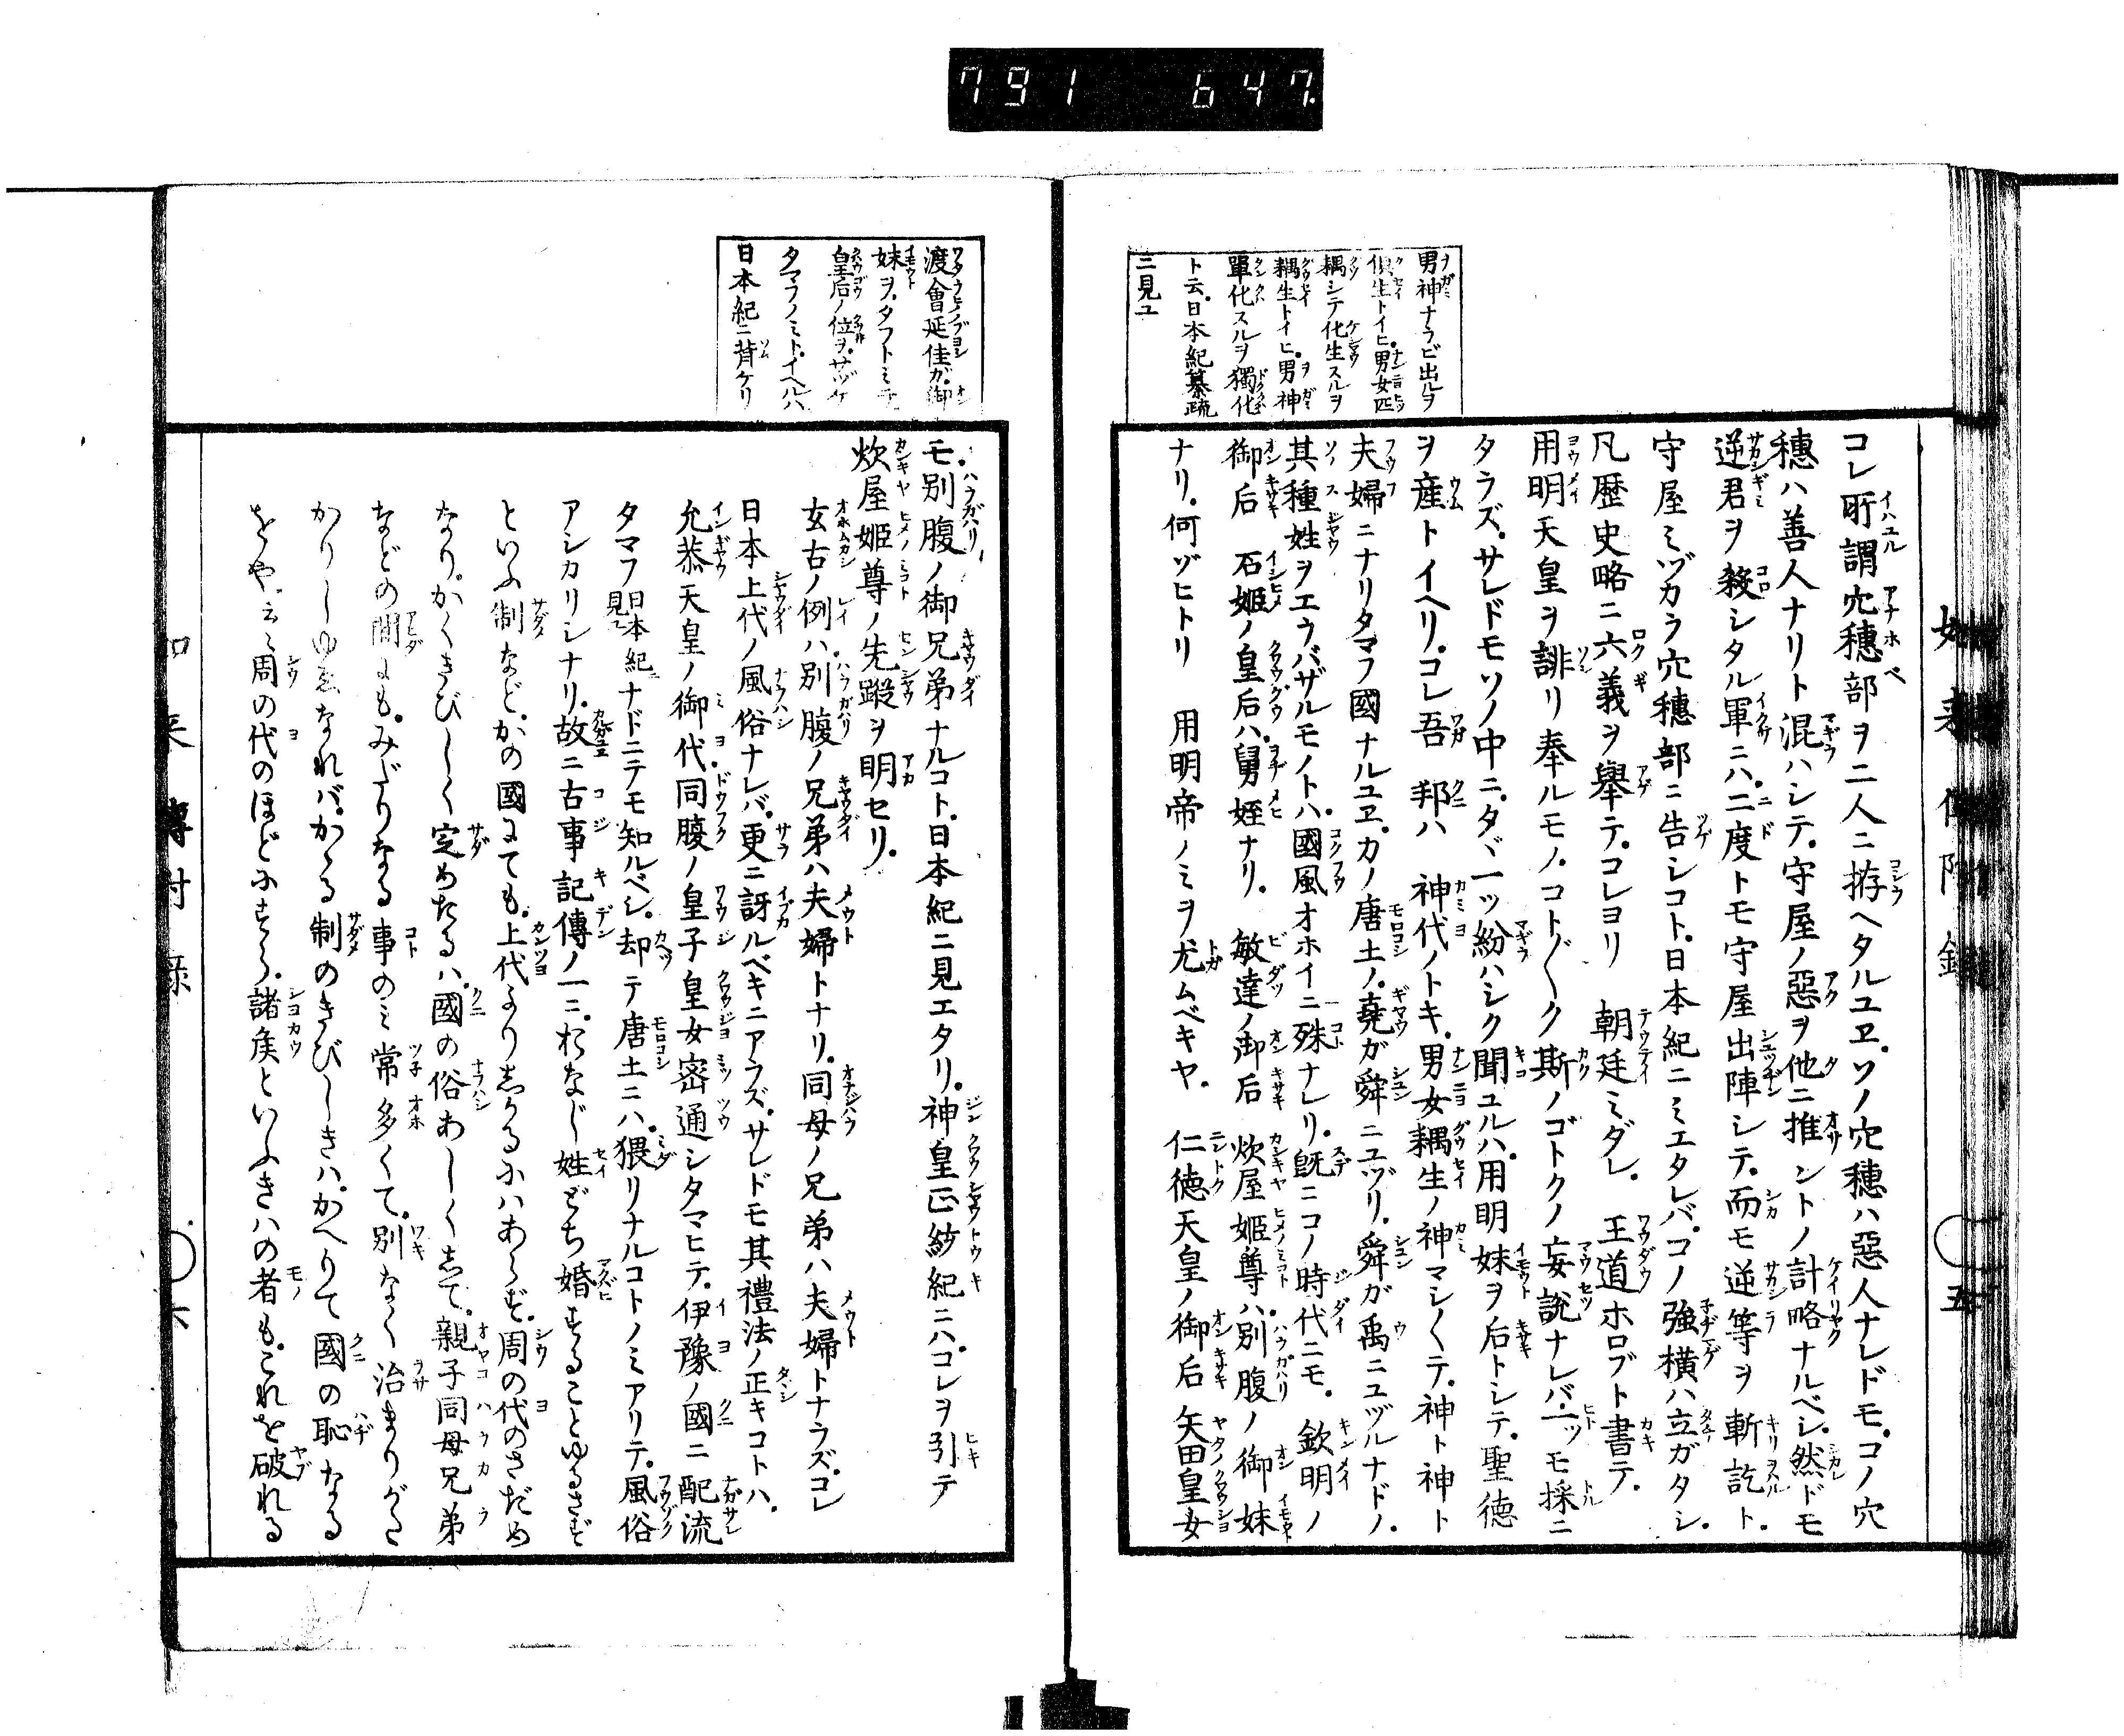 791 647.
男神ナラビ出ルヲ
倶生トイヒ。男女匹
耦シテ化生スルヲ
耦生トイヒ。男神
單化スルヲ獨化
ト云。日本紀纂疏
ニ見ユ
コレ所謂穴穗部ヲ二人ニ拵ヘタルユヱ。ソノ穴穗ハ惡人ナレドモ。コノ穴
穗ハ善人ナリト混ハシテ。守屋ノ惡ヲ他ニ推ントノ計略ナルベシ。然ドモ
逆君ヲ殺シタル軍ニハ。二度トモ守屋出陣シテ。而モ逆等ヲ斬訖ト。
守屋ミヅカラ穴穗部ニ告シコト。日本紀ニミエタレバ。コノ強横ハ立ガタシ。
凡歴史略ニ六義ヲ擧テ。コレヨリ 朝廷ミダレ。 王道ホロブト書テ。
用明天皇ヲ誹リ奉ルモノ。コト〲ク斯ノゴトクノ妄説ナレバ。一ツモ採ニ
タラズ。サレドモソノ中ニ。タヾ一ツ紛ハシク聞ユルハ。用明妹ヲ后トシテ。聖德
ヲ産トイヘリ。コレ吾 邦ハ 神代ノトキ。男女耦生ノ神マシ〱テ。神ト神ト
夫婦ニナリタマフ國ナルユヱ。カノ唐土ノ。堯ガ舜ニユヅリ。舜ガ禹ニユヅルナドノ。
其種姓ヲエウバザルモノトハ。國風オホイニ殊ナレリ。既ニコノ時代ニモ。 欽明ノ
御后 石姫ノ皇后ハ。舅姪ナリ。 敏達ノ御后 炊屋姫尊ハ。別腹ノ御妹
ナリ。何ゾヒトリ 用明帝ノミヲ尤ムベキヤ。 仁徳天皇ノ御后 矢田皇女
五
渡會延佳ガ。御
妹ヲ。タフトミテ
皇后ノ位ヲ。サヅケ
タマフノミト。イヘルハ
日本紀ニ背ケリ
モ。別腹ノ御兄弟ナルコト。日本紀ニ見エタリ。神皇正紗紀ニハ。コレヲ引テ
炊屋姫尊ノ先蹤ヲ明セリ。
玄古ノ例ハ。別腹ノ兄弟ハ夫婦トナリ。同母ノ兄弟ハ夫婦トナラズ。コレ
日本上代ノ風俗ナレバ。更ニ訝ルベキニアラズ。サレドモ其禮法ノ正キコトハ。
允恭天皇ノ御代。同腹ノ皇子皇女密通シタマヒテ。伊豫ノ國ニ配流
タマフ日本紀ニ見ユナドニテモ知ルベシ。却テ唐土ニハ。猥リナルコトノミアリテ。風俗
アシカリシナリ。故ニ古事記傳ノ一ニ。おなじ姓どち婚することゆるさず
といふ制など。かの國にても。上代よりしかるにハあらず。周の代のさだめ
なり。かくきびしく定めたるハ。國の俗あしくして。親子同母兄弟
などの間にも。みだりなる事のミ常多くて。別なく治まりがた
かりしゆゑなれバ。かゝる制のきびしきハ。かへりて國の恥なる
をや云々周の代のほどにすら。諸侯といふきハの者も。これを破れる
傳附録
六